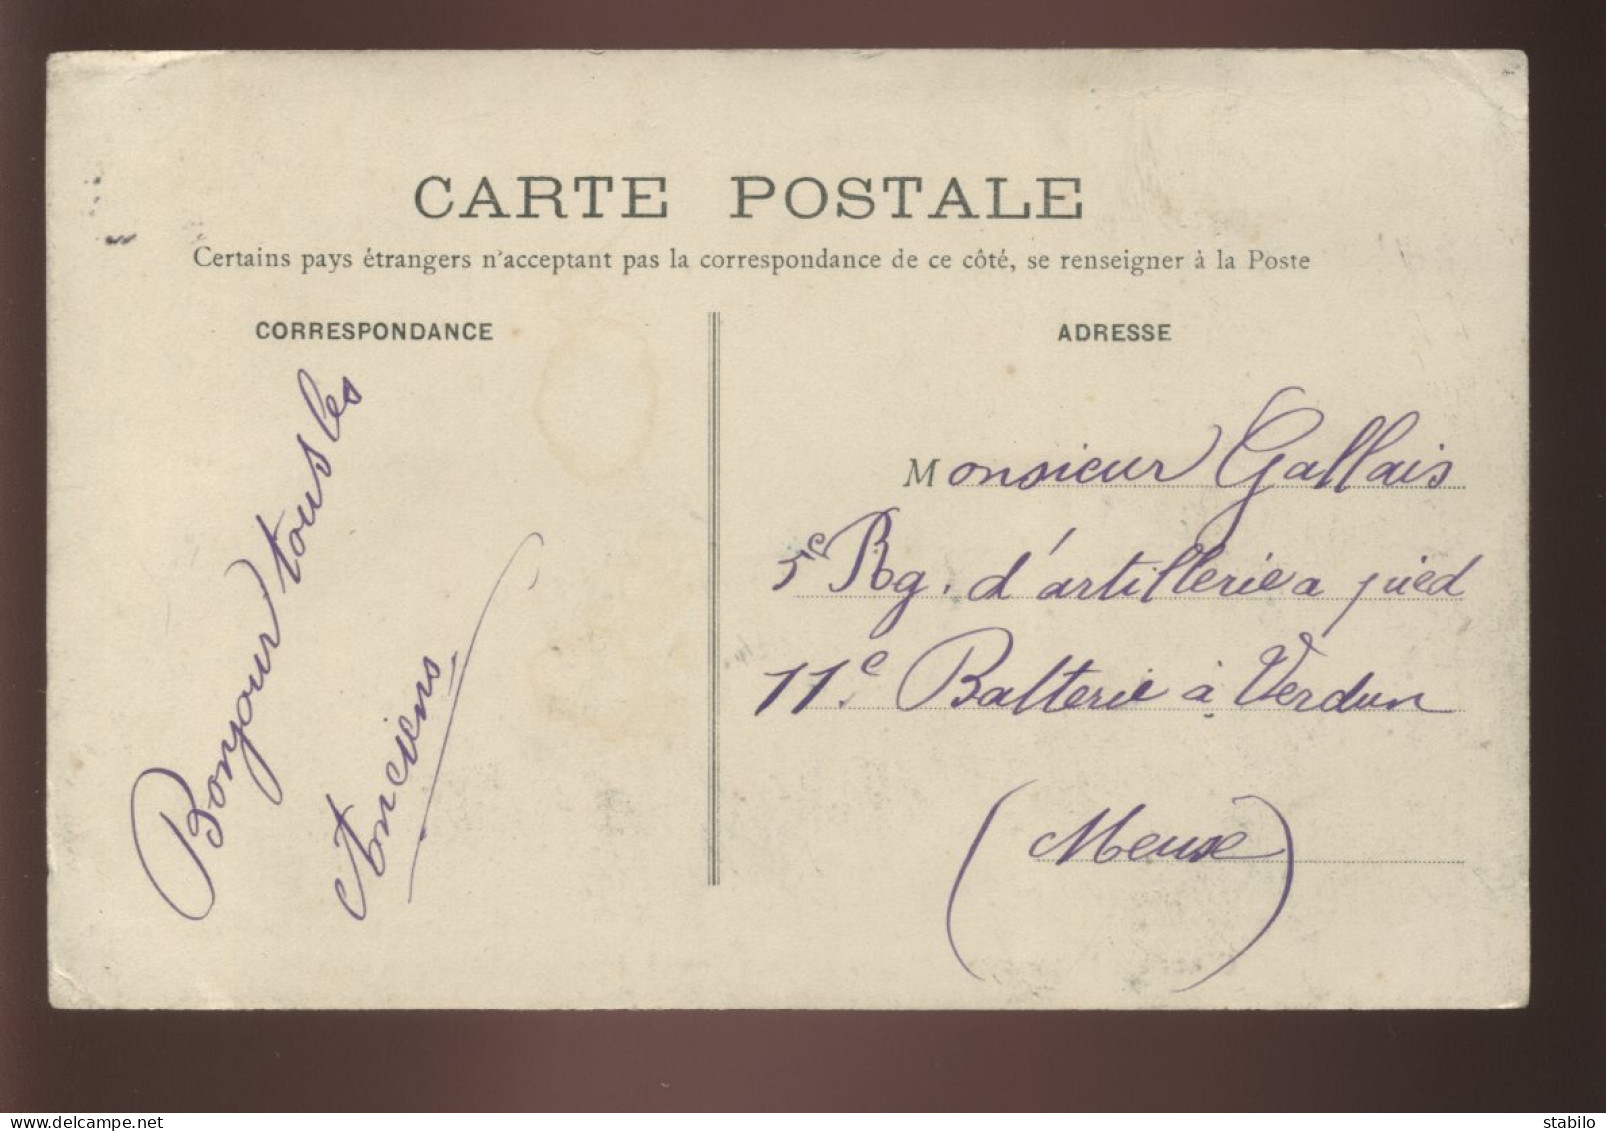 CARTE POSTALE
Certains pays étrangers n'acceptant pas la correspondance de ce côté, se renseigner à la Poste
CORRESPONDANCE
Bonjour tous les
Anciens
ADRESSE
Monsieur Gallais
5e Rg. d'artillerie a pied
11e Batterie à Verdun
(Meuse)
www.stabilo-d.be